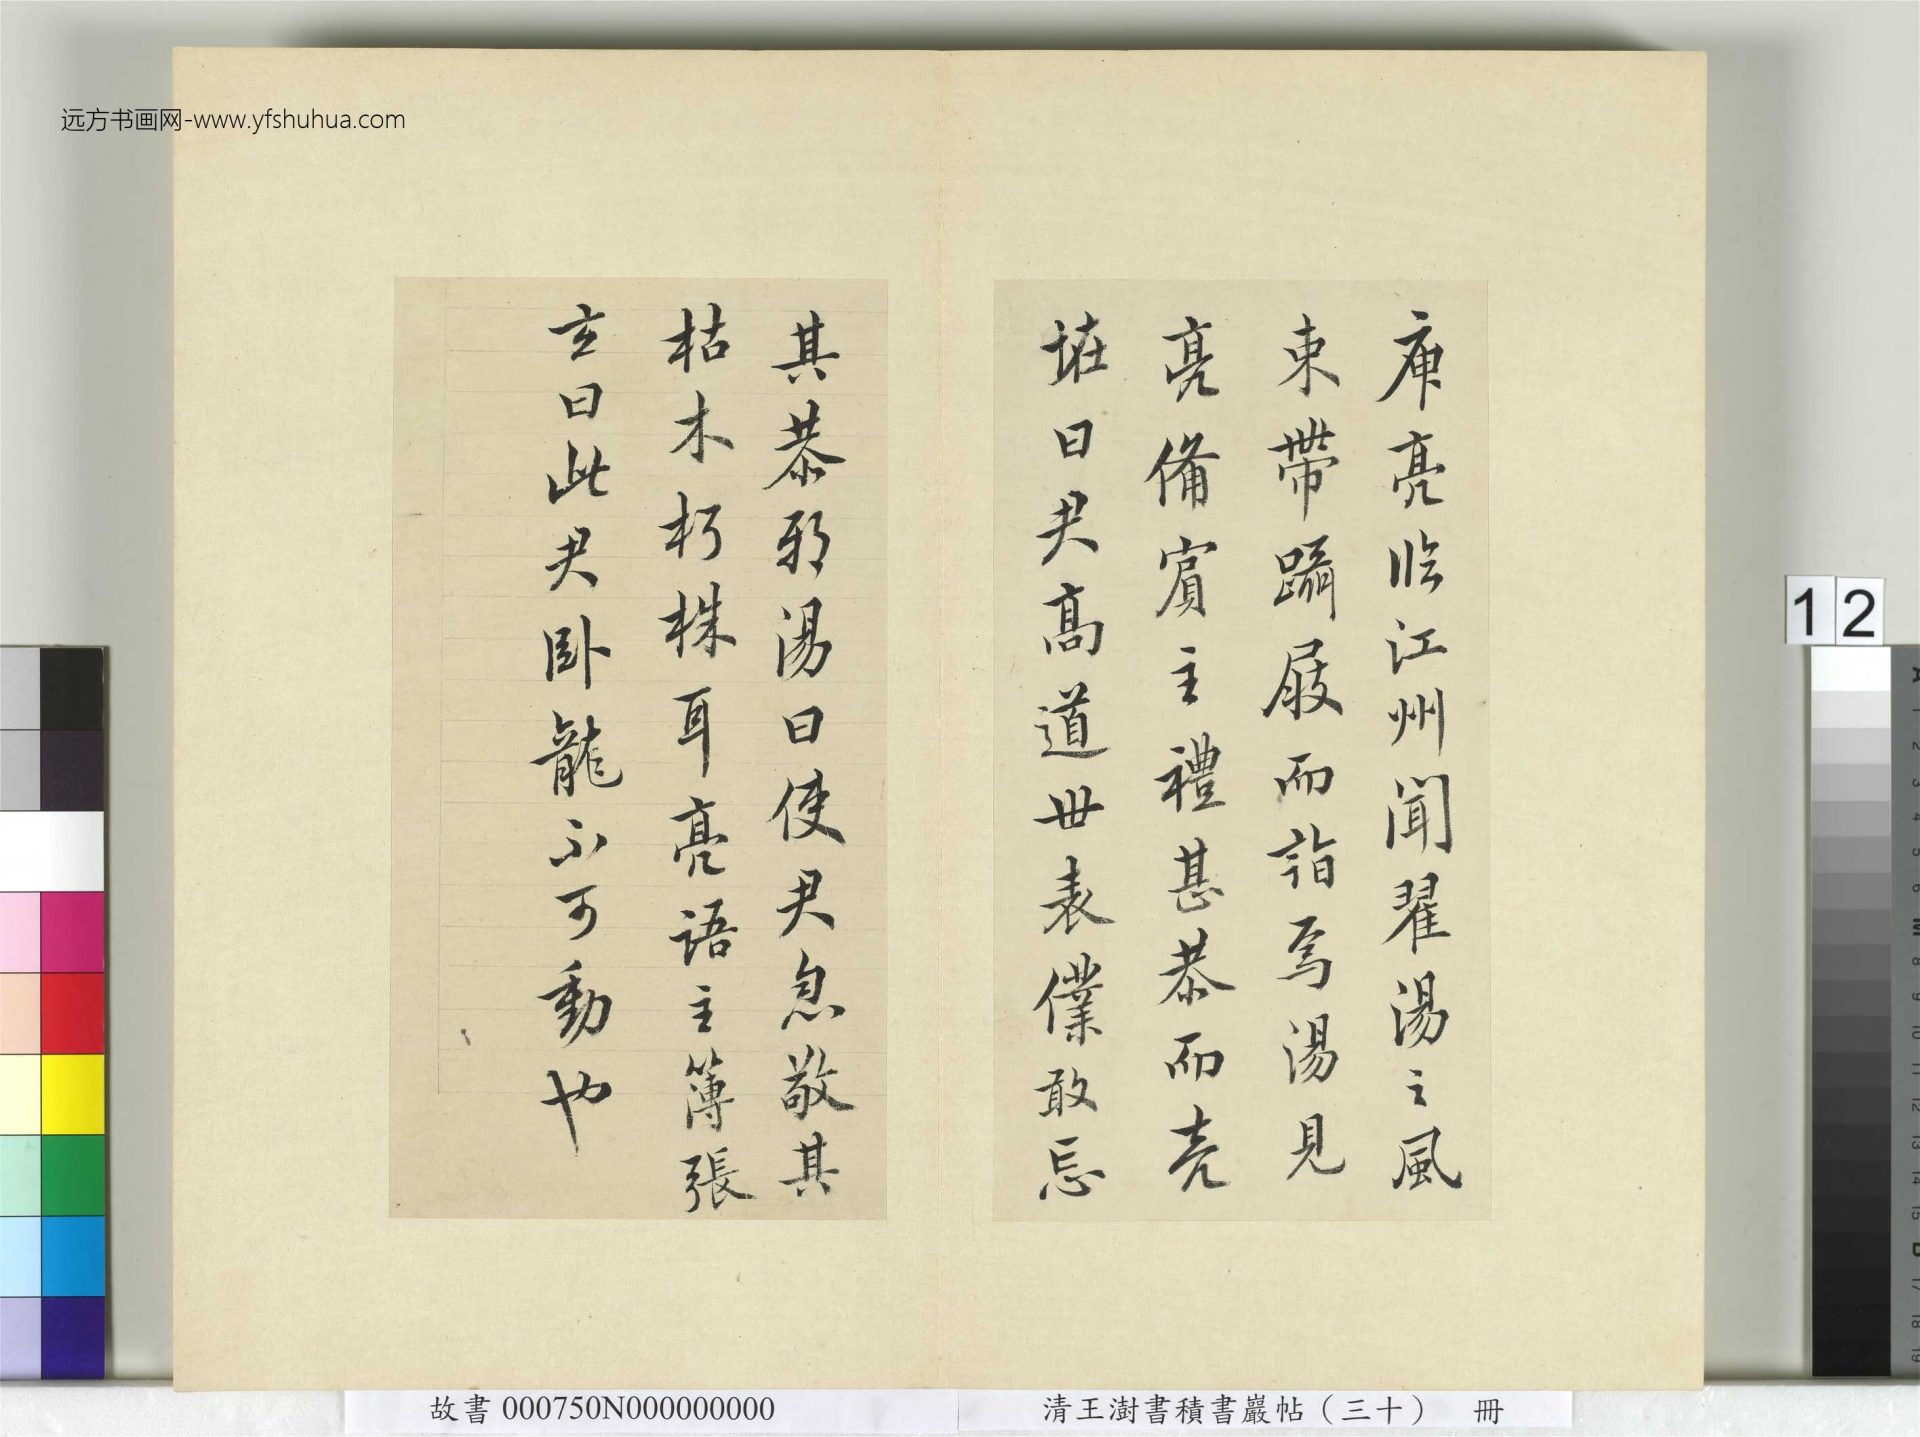 远方书画网-www.yfshuhua.com
庾亮臨江州聞翟湯之風
束帶躡屐而詣焉湯見
亮備賓主禮甚恭而亮
曰君高道世表僕敢忘
其恭邪湯曰使君忽敬其
枯木朽株耳亮語主簿張
玄曰此君卧龍不可動也
12
故書 000750N000000000
清王澍書積書巖帖（三十） 冊